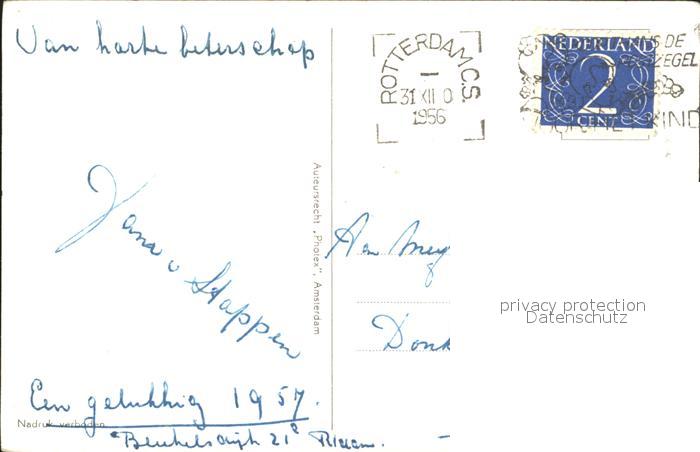 Van harte beterschap
ROTTERDAM C.S.
31 XII 0
1956
NEDERLAND
2
CENT
NS DE
ZEGEL
KIND
Jana v Stappen
Auteursrecht „Photex", Amsterdam
Aan Mej
Donk
privacy protection
Datenschutz
Een gelukkig 1957.
Nadruk verboden
Beukelsdijk 21